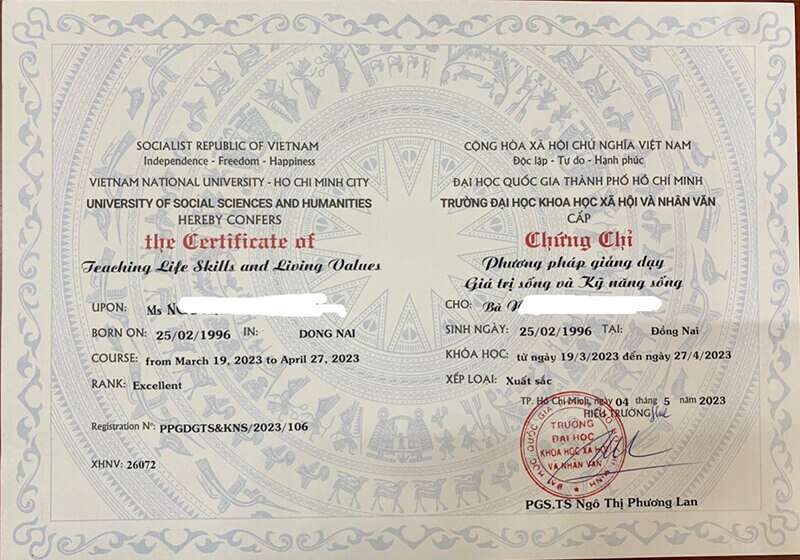 SOCIALIST REPUBLIC OF VIETNAM
Independence - Freedom - Happiness
VIETNAM NATIONAL UNIVERSITY - HO CHI MINH CITY
UNIVERSITY OF SOCIAL SCIENCES AND HUMANITIES
HEREBY CONFERS
the Certificate of
Teaching Life Skills and Living Values
UPON: Ms
BORN ON: 25/02/1996 IN: DONG NAI
COURSE: from March 19, 2023 to April 27, 2023
RANK: Excellent
Registration Nº: PPGDGTS&KNS/2023/106
XHNV: 26072
CỘNG HÒA XÃ HỘI CHỦ NGHĨA VIỆT NAM
Độc lập - Tự do - Hạnh phúc
ĐẠI HỌC QUỐC GIA THÀNH PHỐ HỒ CHÍ MINH
TRƯỜNG ĐẠI HỌC KHOA HỌC XÃ HỘI VÀ NHÂN VĂN
CẤP
Chứng Chỉ
Phương pháp giảng dạy
Giá trị sống và Kỹ năng sống
CHO: Bà
SINH NGÀY: 25/02/1996 TẠI: Đồng Nai
KHÓA HỌC: từ ngày 19/3/2023 đến ngày 27/4/2023
XẾP LOẠI: Xuất sắc
TP. Hồ Chí Minh, ngày 04 tháng 5 năm 2023
HIỆU TRƯỞNG
TRƯỜNG
ĐẠI HỌC
KHOA HỌC XÃ HỘI
VÀ NHÂN VĂN
PGS.TS Ngô Thị Phương Lan